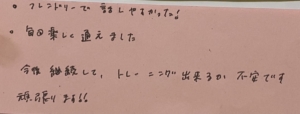 。フレンドリーで 話しやすかった!
。毎回楽しく通えました
今後 継続して、トレーニング出来るか 不安です
頑張ります!!